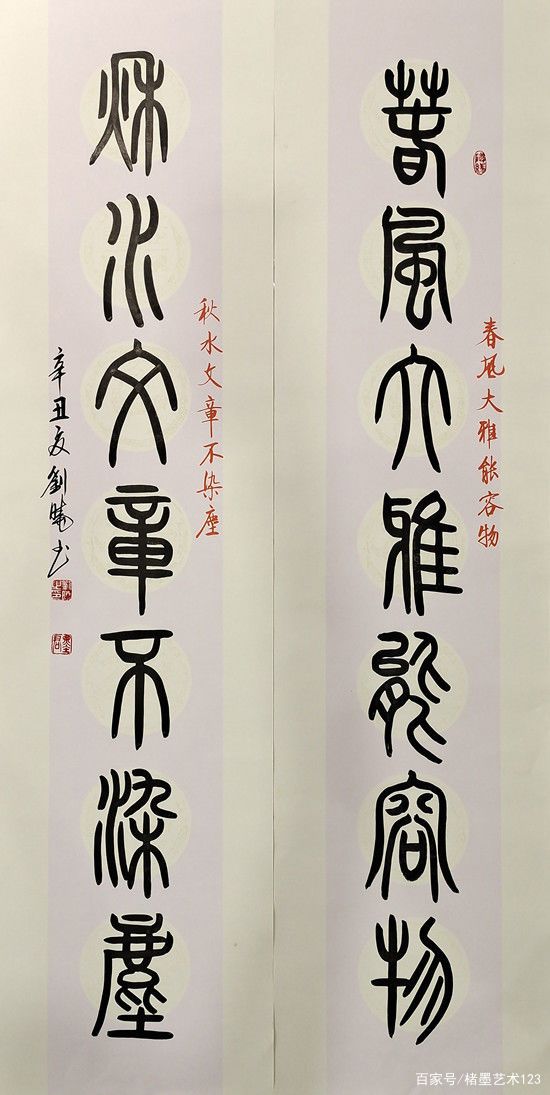 春風大雅能容物
春風大雅能容物
秋水文章不染塵
秋水文章不染塵
辛丑夏劉曉书
百家号/楮墨艺术123